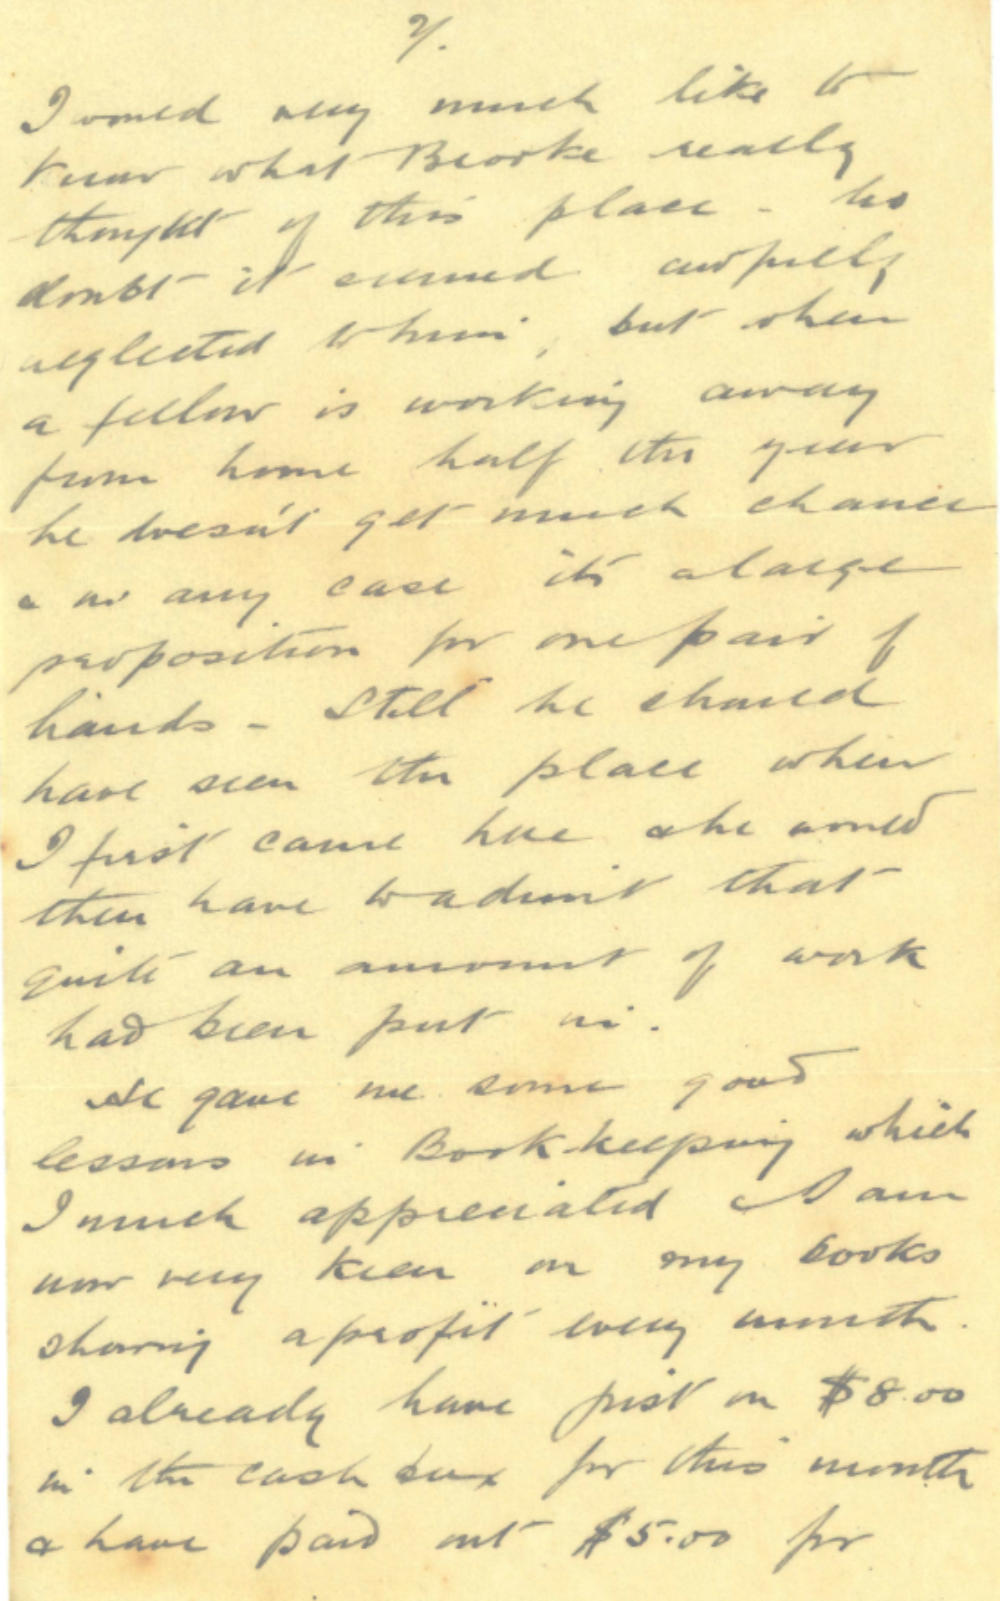 2/.
I would very much like to
know what Brooke really
thought of this place - no
doubt it seemed awfully
neglected to him, but when
a fellow is working away
from home half the year
he doesn't get much chance
& in any case it's a large
proposition for one pair of
hands - Still he should
have seen the place when
I first came here & he would
then have to admit that
quite an amount of work
had been put in.
He gave me some good
lessons in Book-keeping which
I much appreciated & I am
now very keen on my books
showing a profit every month.
I already have just on $8.00
in the cash box for this month
& have paid out $5.00 for